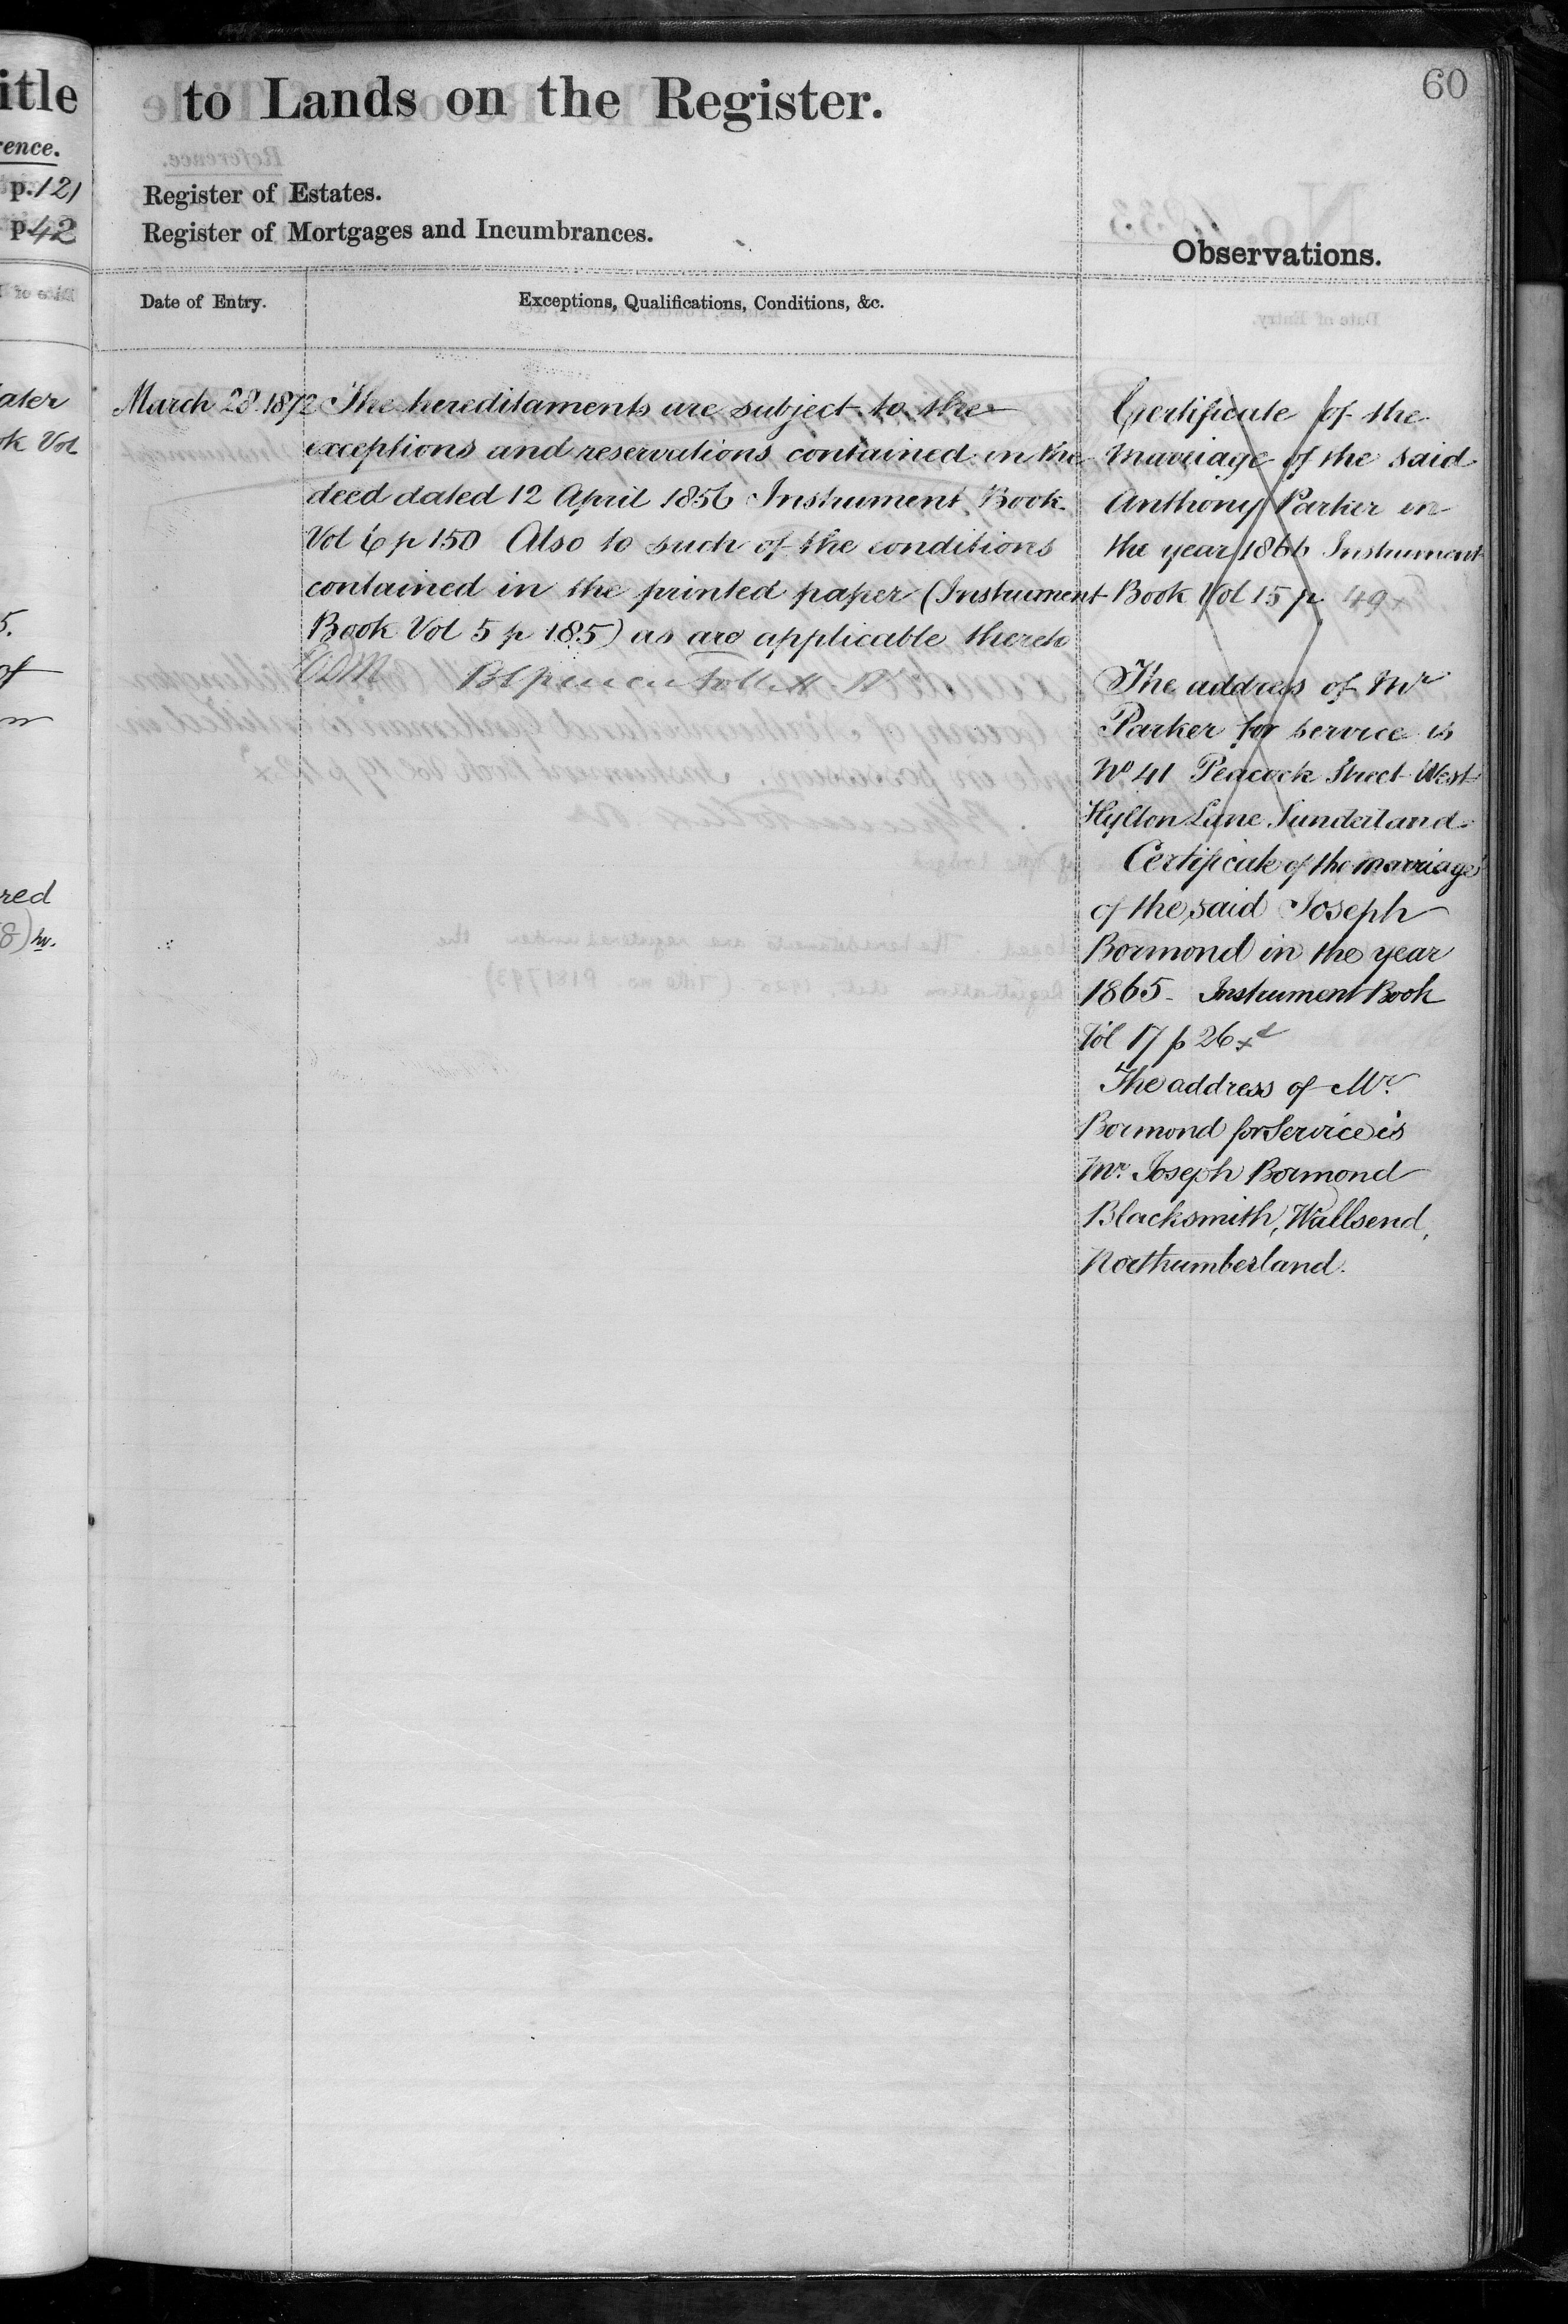 itle
rence.
p. 121
p. 42
ater
ok Vol
5.
of
red
8) hr.
to Lands on the Register.
60
Register of Estates.
Register of Mortgages and Incumbrances.
Observations.
Date of Entry.
Exceptions, Qualifications, Conditions, &c.
March 28. 1872
The hereditaments are subject to the
exceptions and reservations contained in the
deed dated 12 April 1856 Instrument Book
Vol 6 p 150 Also to such of the conditions
contained in the printed paper (Instrument
Book Vol 5 p 185) as are applicable thereto
Certificate of the
Marriage of the said
Anthony Parker in
the year 1866 Instrument
Book Vol 15 p 49
The address of Mr
Parker for service is
No 41 Peacock Street West
Hylton Lane Sunderland.
Certificate of the marriage
of the said Joseph
Bormond in the year
1865 - Instrument Book
Vol 17 p 26
The address of Mr.
Bormond for Service is
Mr. Joseph Bormond
Blacksmith, Wallsend,
Northumberland.